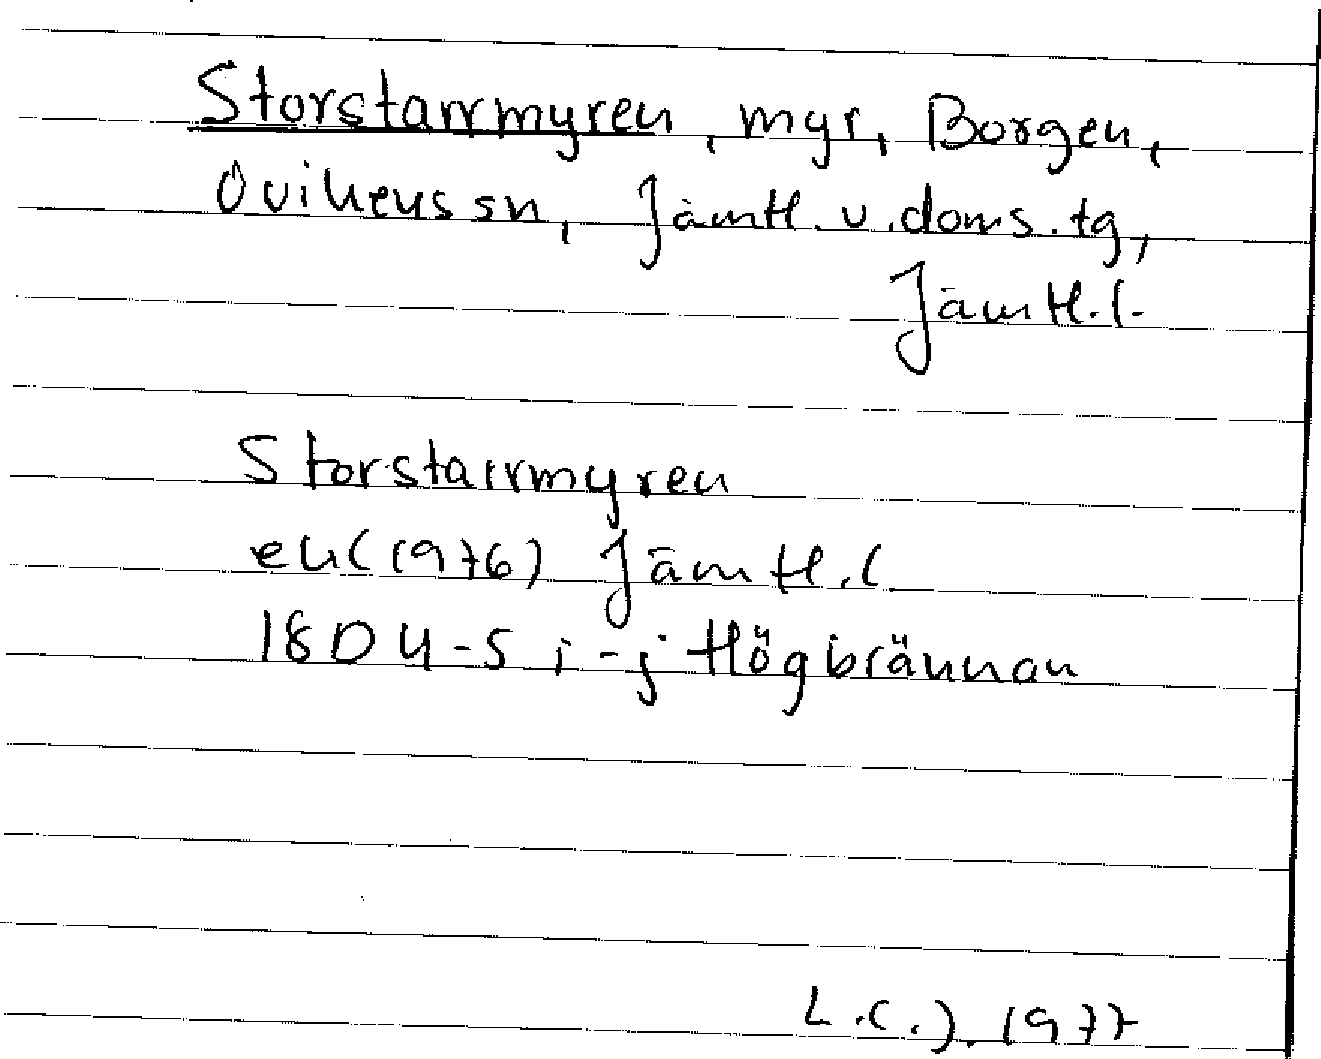 Storstarrmyren, myr, Borgen,
Ovikens sn, Jämtl. v. doms. tg,
Jämtl. l.
Storstarrmyren
ek (1976) Jämtl. l
18D 4-5 i-j Högbrännan
L.C.J. 1977